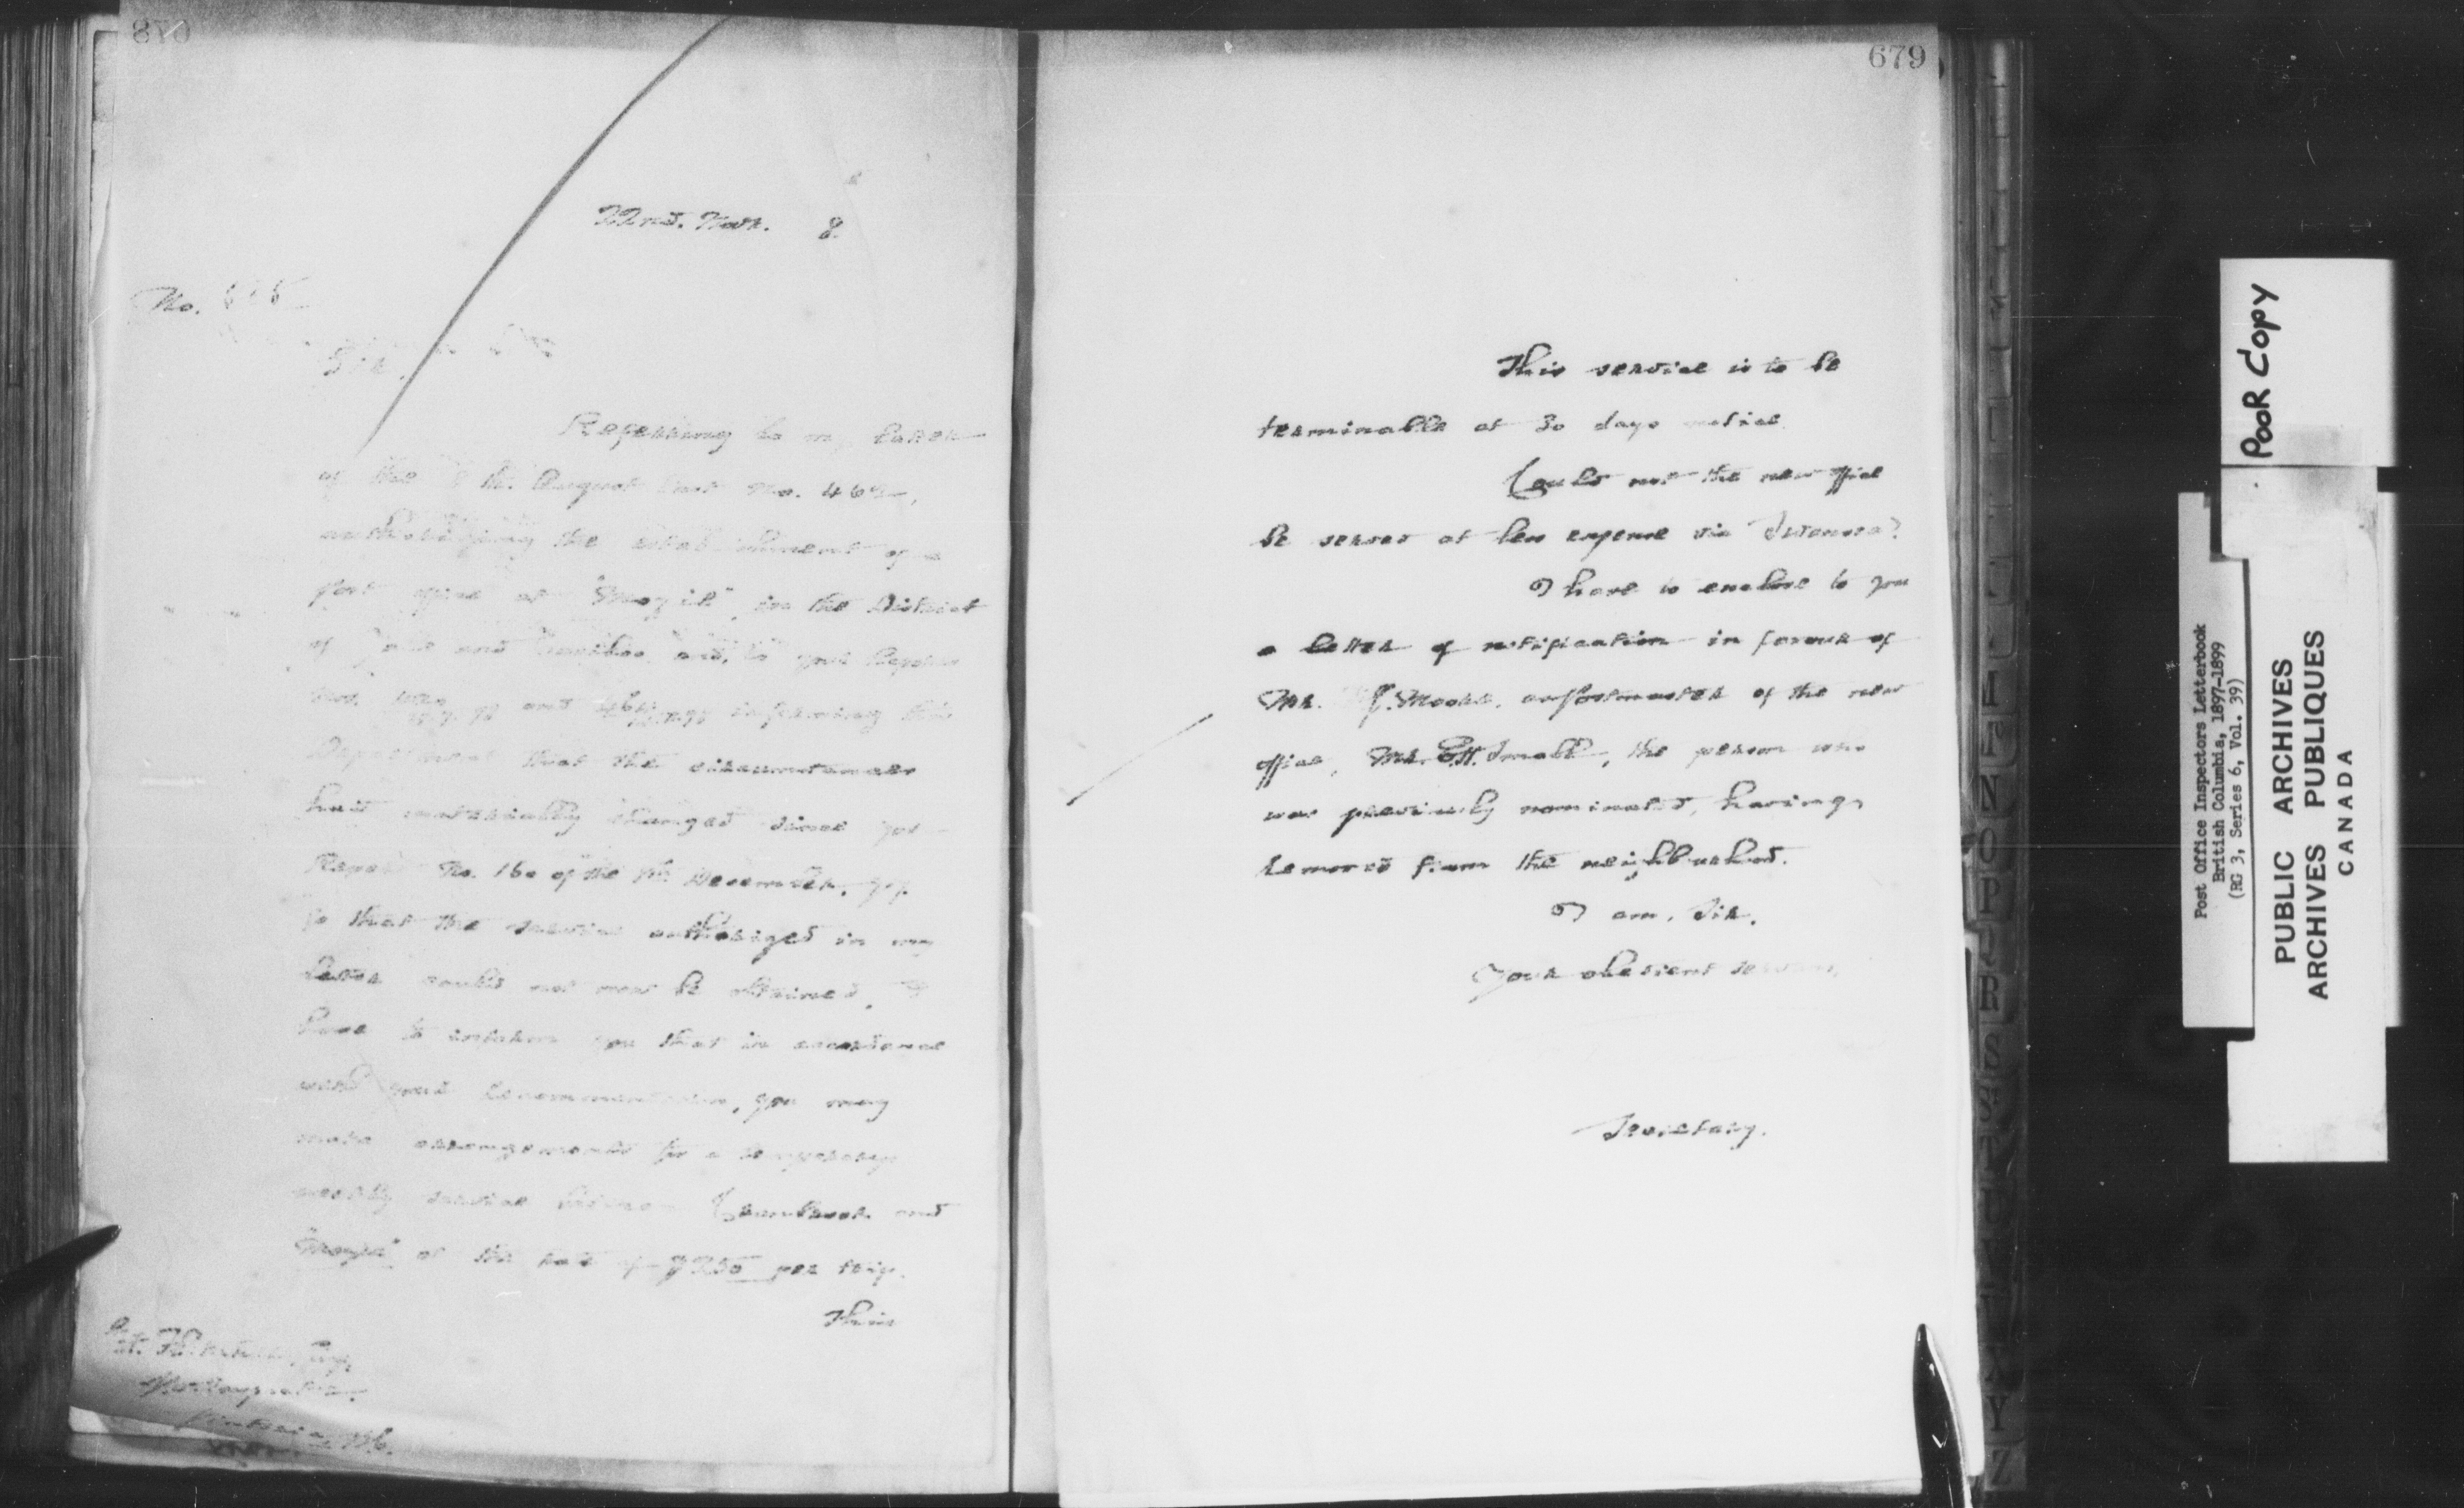 22nd. Nov. 8
No.
Sir,
Referring to my letter
of the th. August last No. 46
authorizing the establishment of a
post office at "Moyie", in the District
of Yale and Cariboo, and, to your Reports
Nos. and informing this
Department that the circumstances
had materially changed since your
Report No. 160 of the 7th December, 97,
so that the service authorized in my
letter could not now be obtained, I
have to inform you that in accordance
with your recommendation, you may
make arrangements for a temporary
weekly service between Cranbrook and
"Moyie" at the rate of $2.50 per trip.
This
Esq.
Victoria, B.C.
679
This service is to be
terminable at 30 days notice.
Could not the new office
be served at less expense via Swansea?
I have to enclose to you
a letter of notification in favour of
Mr. J. Moore, as postmaster of the new
office, Mr. E.H. Small, the person who
was previously nominated, having
removed from the neighbourhood.
I am, Sir,
Your obedient servant,
Secretary.
M
N
O
P
R
S
T
X
Y
Z
POOR COPY
Post Office Inspectors Letterbook
British Columbia, 1897-1899
(RG 3, Series 6, Vol. 39)
PUBLIC ARCHIVES
ARCHIVES PUBLIQUES
CANADA